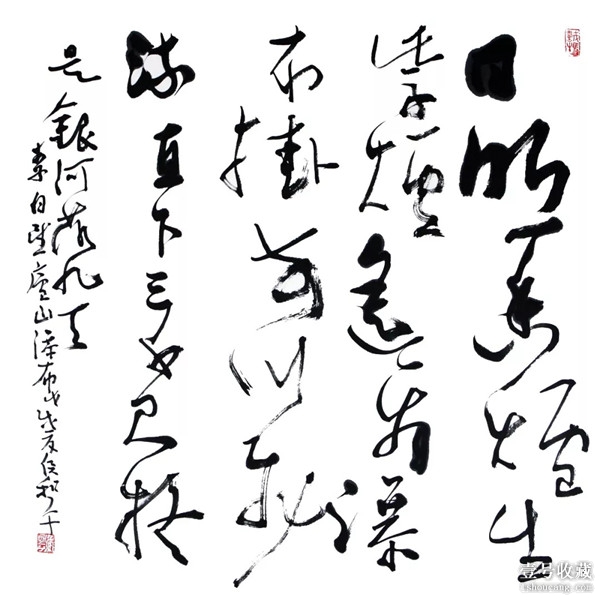 日照香爐生
紫煙遙看瀑
布掛前川飛
流直下三千尺疑
是銀河落九天
李白望廬山瀑布
壹号收藏